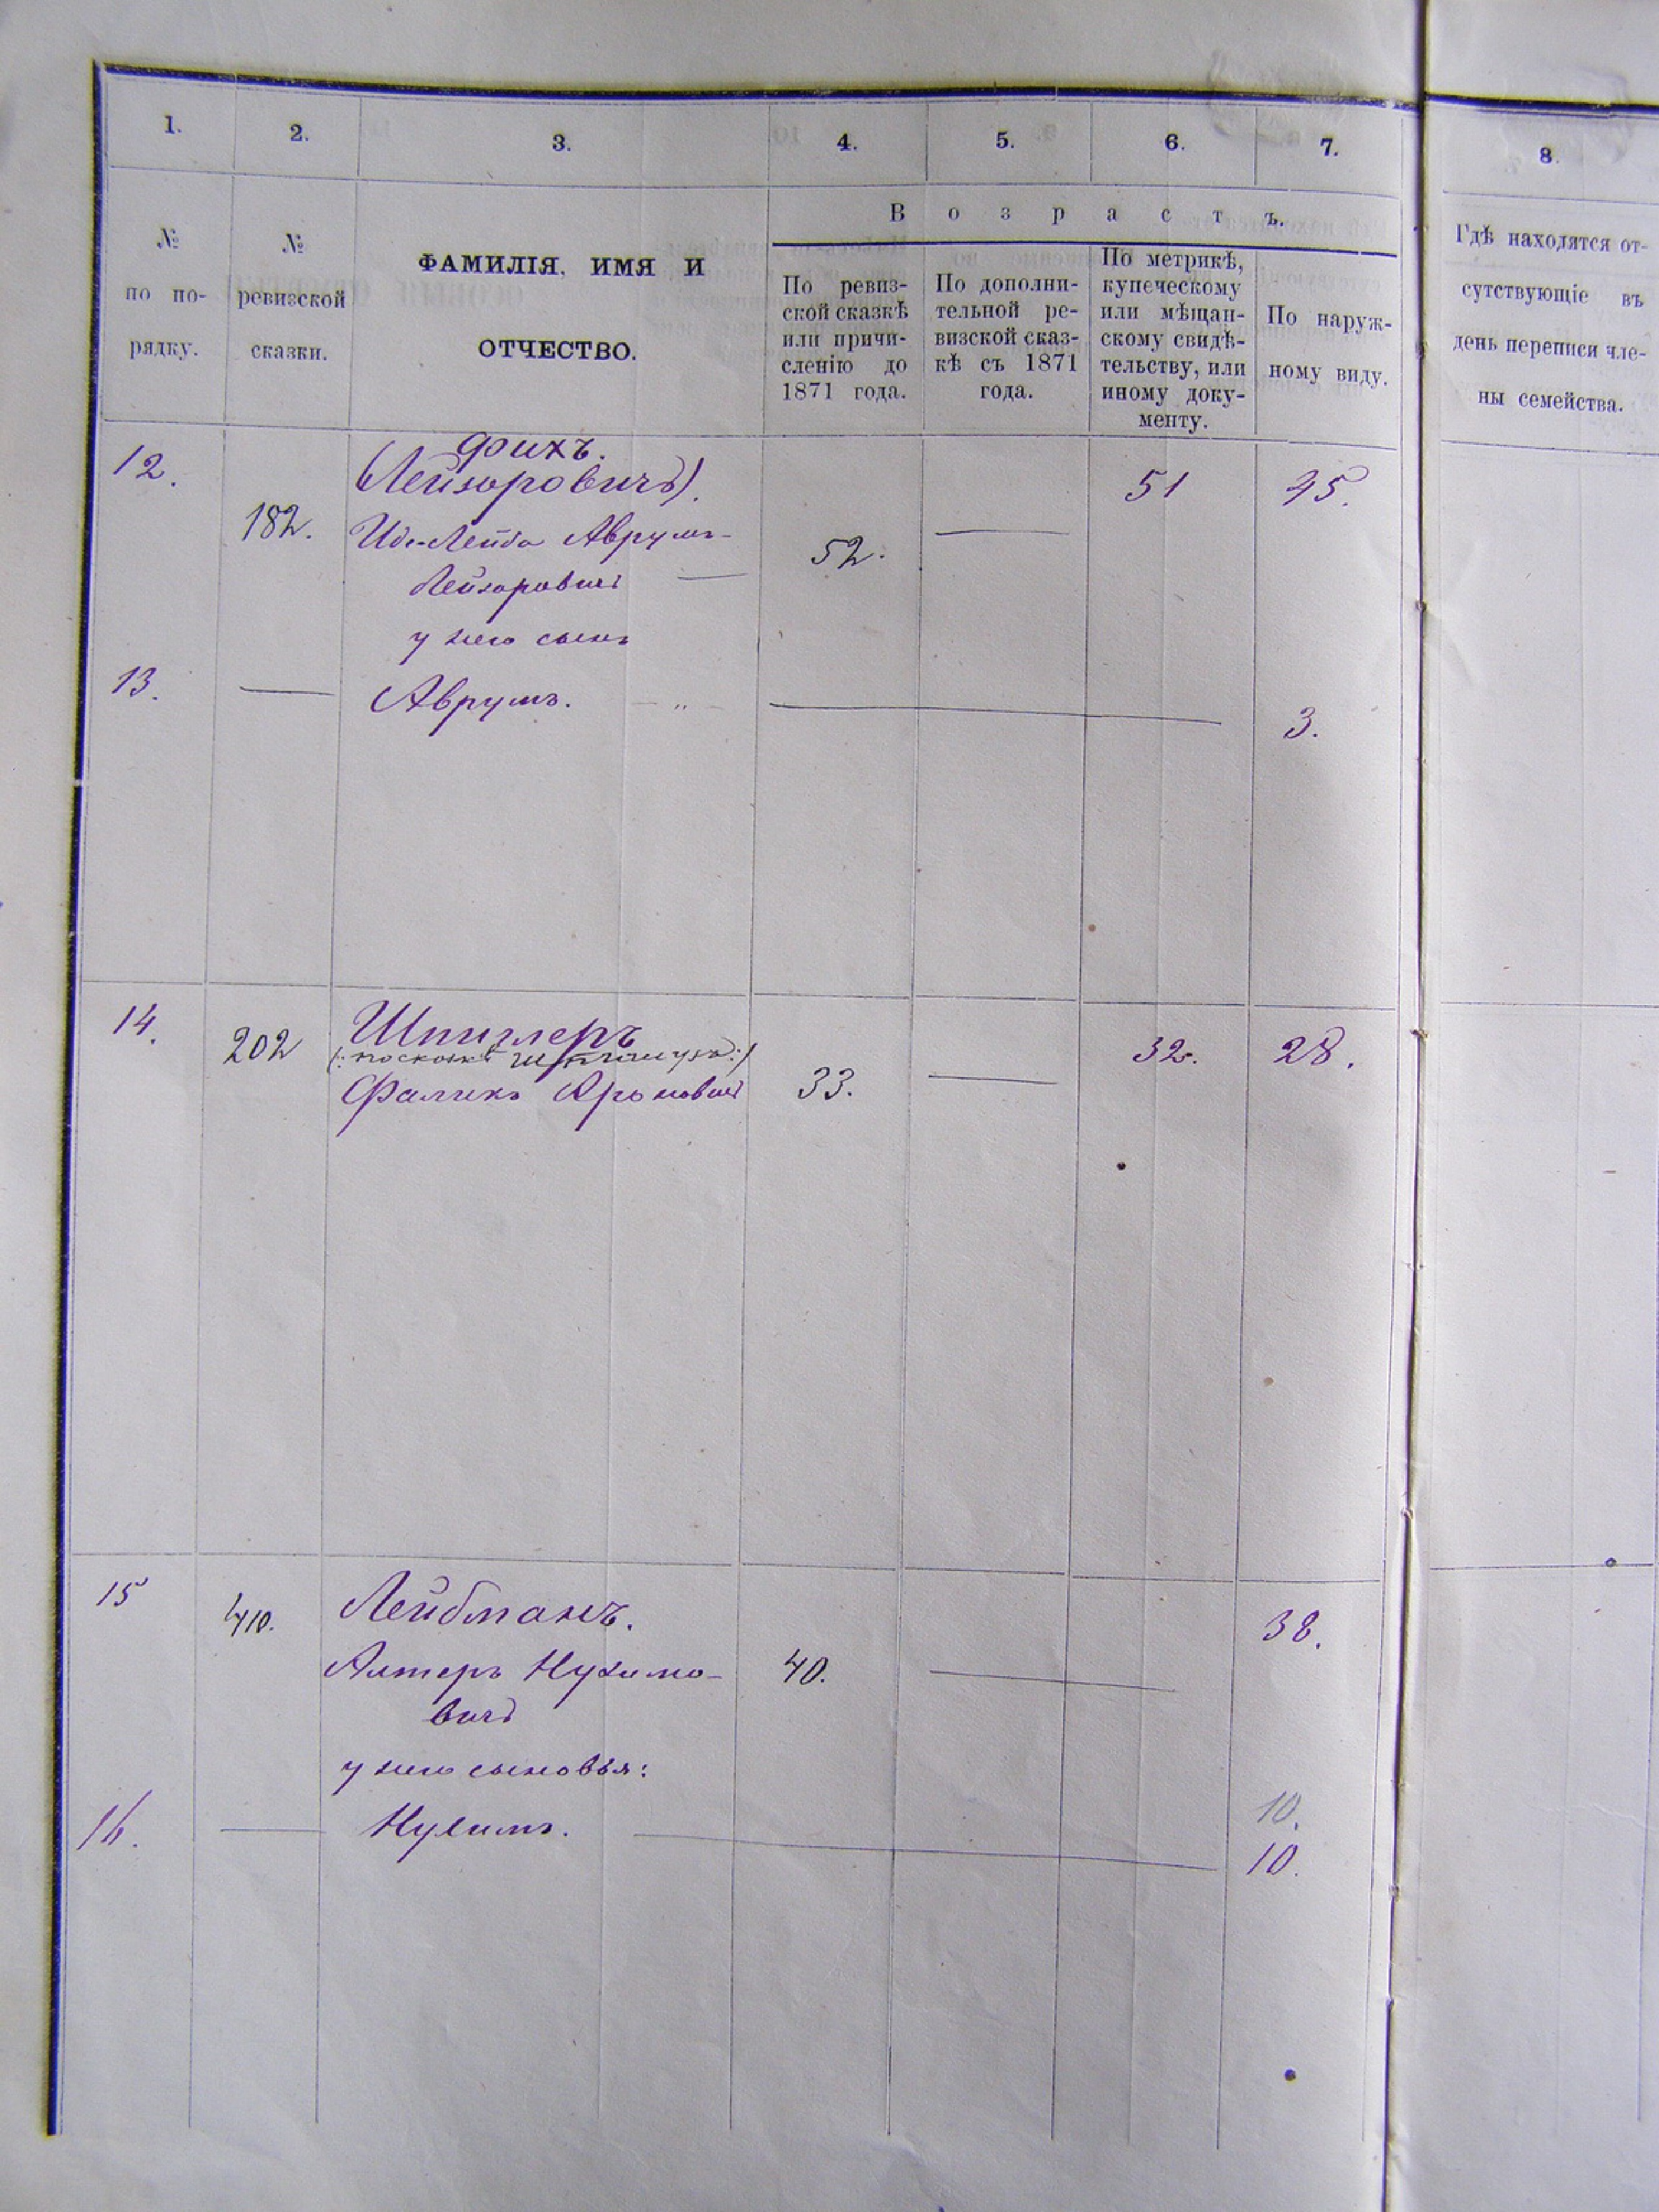 1.
2.
3.
4.
5.
6.
7.
8.
№
по по-
рядку.
№
ревизской
сказки.
ФАМИЛІЯ, ИМЯ И
ОТЧЕСТВО.
Возрастъ.
По ревиз-
ской сказкѣ
или причи-
сленію до
1871 года.
По дополни-
тельной ре-
визской сказ-
кѣ съ 1871
года.
По метрикѣ,
купеческому
или мѣщан-
скому свидѣ-
тельству, или
иному доку-
менту.
По наруж-
ному виду.
Гдѣ находятся от-
сутствующіе въ
день переписи чле-
ны семейства.
Фихъ.
12. (Лейзоровичъ). 51 45.
182. Лейба Аврумъ- 52.
Лейзоровичъ
у него сынъ
13. Аврумъ. 3.
14. 202 Шпиглеръ 32. 28.
Фаликъ 33.
15 410. Лейбманъ. 38.
Алтеръ Нухимо- 40.
вичъ
у него сыновья:
10.
16. Нухимъ. 10.